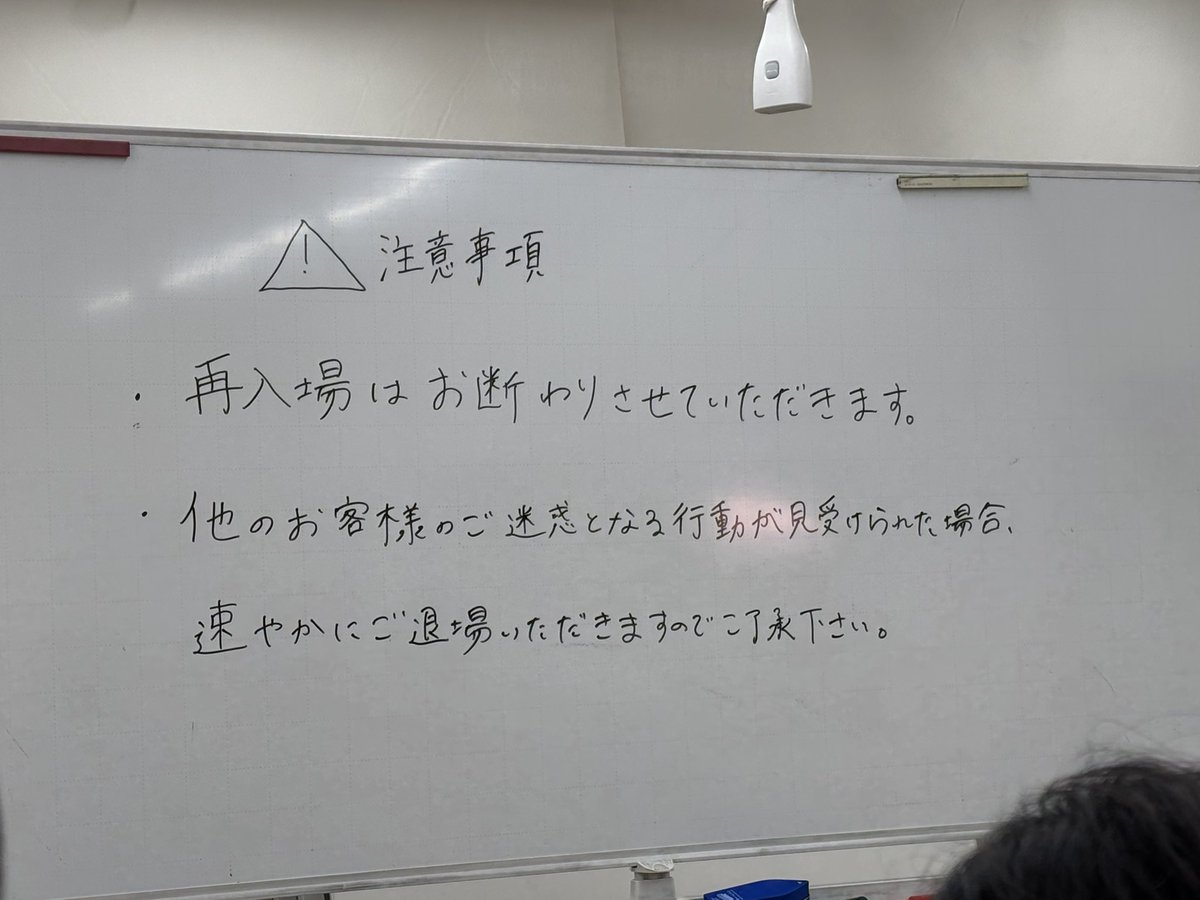 ⚠ 注意事項
・再入場はお断わりさせていただきます。
・他のお客様のご迷惑となる行動が見受けられた場合、
速やかにご退場いただきますのでご了承下さい。